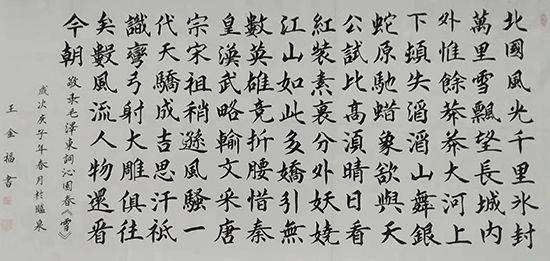 北國風光千里氷封
萬里雪飄望長城内
外惟餘莽莽大河上
下頓失滔滔山舞銀
蛇原馳蜡象欲與天
公試比高須晴日看
紅裝素裹分外妖嬈
江山如此多嬌引無
數英雄竞折腰惜秦
皇漢武略輸文采唐
宗宋祖稍遜風騷一
代天驕成吉思汗祗
識彎弓射大雕俱往
矣數風流人物還看
今朝
敬录毛澤東詞沁园春《雪》
歲次庚子年春月於臨泉
王金福書